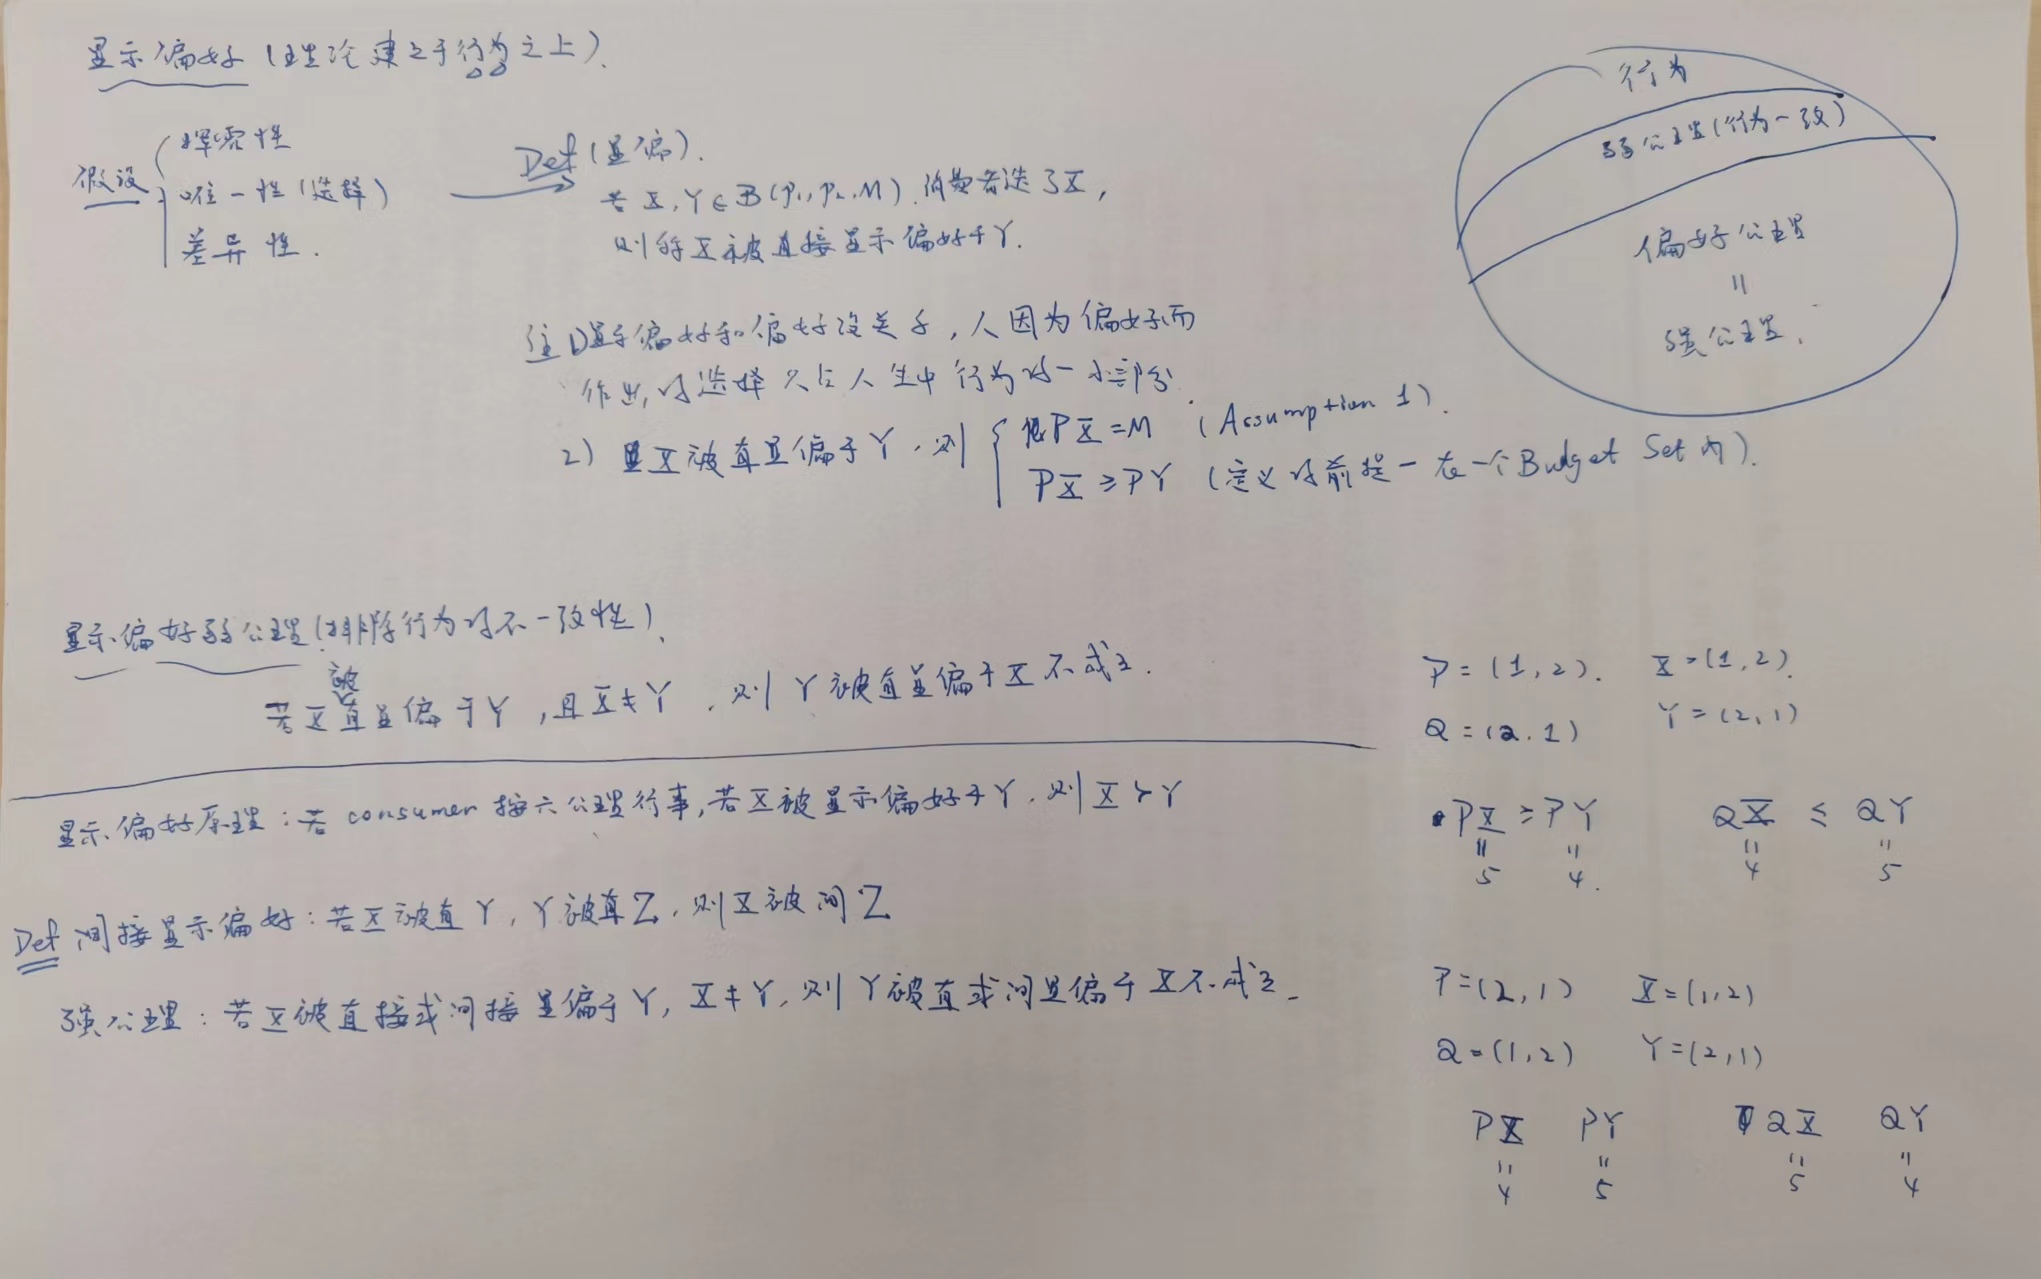 显示偏好(理论建立于行为之上).
假设
挥霍性
唯一性(选择)
差异性.
Def(显偏).
若X,Y∈B(P₁,P₂,M).消费者选了X,
则称X被直接显示偏好于Y.
注 1)显示偏好和偏好没关系,人因为偏好而
作出的选择只占人生中行为的一小部分.
2) X被直显偏于Y.则
PX=M (Assumption 1).
PX≥PY (定义的前提—在一个Budget Set内).
行为
弱公理(行为一致)
偏好公理
=
强公理.
显示偏好弱公理(排除行为的不一致性).
若X被直显偏于Y,且X≠Y,则Y被直显偏于X不成立.
显示偏好原理:若consumer按六公理行事,若X被显示偏好于Y.则X≻Y
Def 间接显示偏好:若X被直Y,Y被直Z,则X被间Z
强公理:若X被直接或间接显偏于Y,X≠Y,则Y被直或间显偏于X不成立.
P=(1,2). X=(1,2).
Q=(2.1) Y=(2,1)
PX≥PY QX≤QY
= = = =
5 4. 4 5
P=(2,1) X=(1,2)
Q=(1,2) Y=(2,1)
PX PY QX QY
= = = =
4 5 5 4